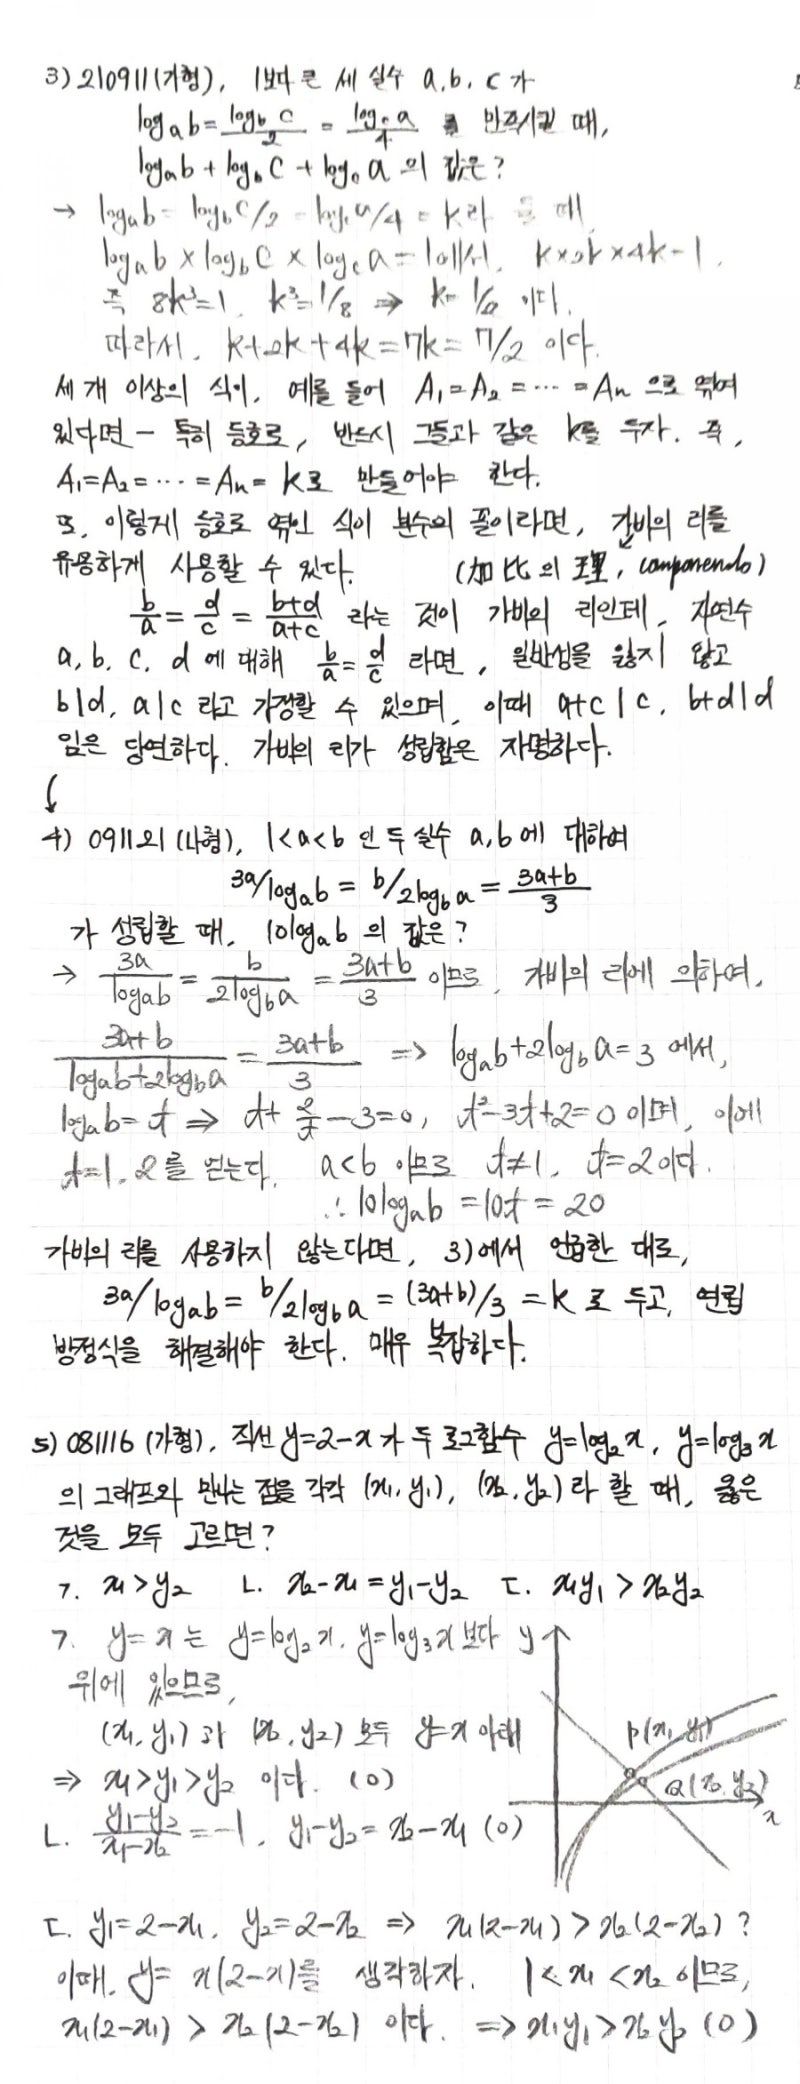 3) 210911(가형), 1보다 큰 세 실수 a, b, c가
log_a b = log_b c / 2 = log_c a / 4 를 만족시킬 때,
log_a b + log_b c + log_c a 의 값은?
→ log_a b = log_b c/2 = log_c a/4 = k라 둘 때,
log_a b × log_b c × log_c a = 1에서, k×2k×4k=1,
즉 8k³=1, k³=1/8 ⇒ k=1/2 이다.
따라서, k+2k+4k=7k=7/2 이다.
세 개 이상의 식이, 예를 들어 A₁=A₂=⋯=Aₙ 으로 엮여
있다면 - 특히 등호로, 반드시 그들과 같은 k를 두자. 즉,
A₁=A₂=⋯=Aₙ=k로 만들어야 한다.
또, 이렇게 등호로 엮인 식이 분수의 꼴이라면, 가비의 리를
유용하게 사용할 수 있다. (加比의 理, componendo)
b/a = d/c = (b+d)/(a+c) 라는 것이 가비의 리인데, 자연수
a, b, c, d에 대해 b/a = d/c 라면, 일반성을 잃지 않고
b|d, a|c 라고 가정할 수 있으며, 이때 a+c|c, b+d|d
임은 당연하다. 가비의 리가 성립함은 자명하다.
4) 091121(나형), 1<a<b 인 두 실수 a, b에 대하여
3a/log_a b = b/2log_b a = (3a+b)/3
가 성립할 때, 10log_a b 의 값은?
→ 3a/log_a b = b/2log_b a = (3a+b)/3 이므로, 가비의 리에 의하여,
(3a+b)/(log_a b+2log_b a) = (3a+b)/3 ⇒ log_a b+2log_b a=3 에서,
log_a b=t ⇒ t+2/t-3=0, t²-3t+2=0 이며, 이에
t=1, 2를 얻는다. a<b 이므로 t≠1, t=2이다.
∴ 10log_a b =10t = 20
가비의 리를 사용하지 않는다면, 3)에서 언급한 대로,
3a/log_a b = b/2log_b a = (3a+b)/3 = k 로 두고, 연립
방정식을 해결해야 한다. 매우 복잡하다.
5) 081116 (가형), 직선 y=2-x가 두 로그함수 y=log₂x, y=log₃x
의 그래프와 만나는 점을 각각 (x₁, y₁), (x₂, y₂)라 할 때, 옳은
것을 모두 고르면?
ㄱ. x₁>y₂ ㄴ. x₂-x₁=y₁-y₂ ㄷ. x₁y₁>x₂y₂
ㄱ. y=x는 y=log₂x, y=log₃x보다
위에 있으므로,
(x₁, y₁)과 (x₂, y₂) 모두 y=x 아래
⇒ x₁>y₁>y₂ 이다. (O)
ㄴ. (y₁-y₂)/(x₁-x₂) = -1, y₁-y₂=x₂-x₁ (O)
y
P(x₁, y₁)
Q(x₂, y₂)
x
ㄷ. y₁=2-x₁, y₂=2-x₂ ⇒ x₁(2-x₁)>x₂(2-x₂)?
이때, y= x(2-x)를 생각하자. 1<x₁<x₂ 이므로,
x₁(2-x₁) > x₂(2-x₂) 이다. ⇒ x₁y₁>x₂y₂ (O)